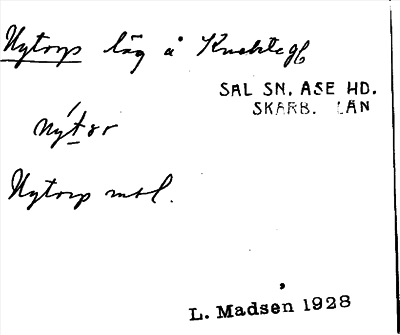 Nytorp låg å Knektegg
SAL SN. ASE HD.
SKARB. LÄN
nýtor
Nytorp mal.
L. Madsen 1928